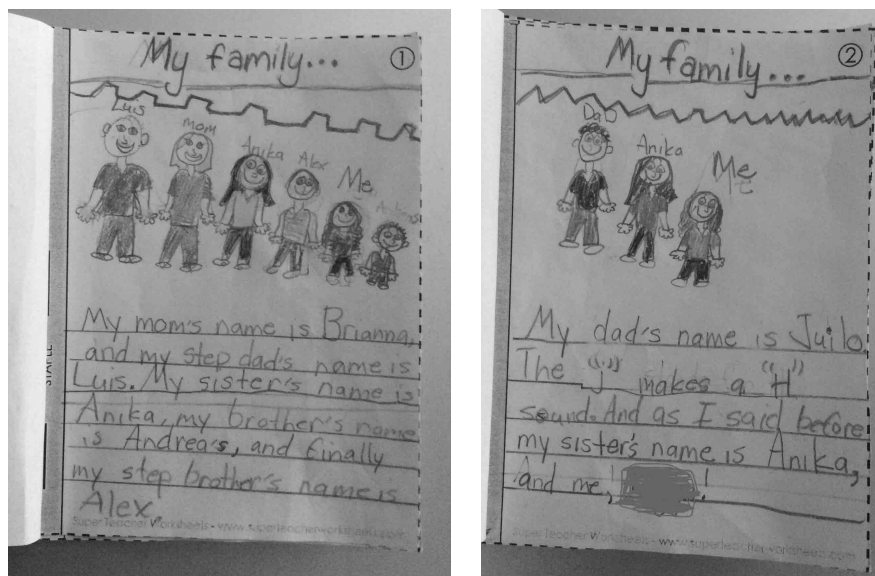 My family...
1
Luis
mom
Anika
Alex
Me
My mom's name is Brianna,
and my step dad's name is
Luis. My sister's name is
Anika, my brother's name
is Andrea's, and finally
my step brother's name is
Alex.
Super Teacher Worksheets - www.superteacherworksheets.com
STAPLE
My family...
2
DaD
Anika
Me
My dad's name is Juilo.
The "j" makes a "H"
sound. And as I said before
my sister's name is Anika,
And me, !
Super Teacher Worksheets - www.superteacherworksheets.com